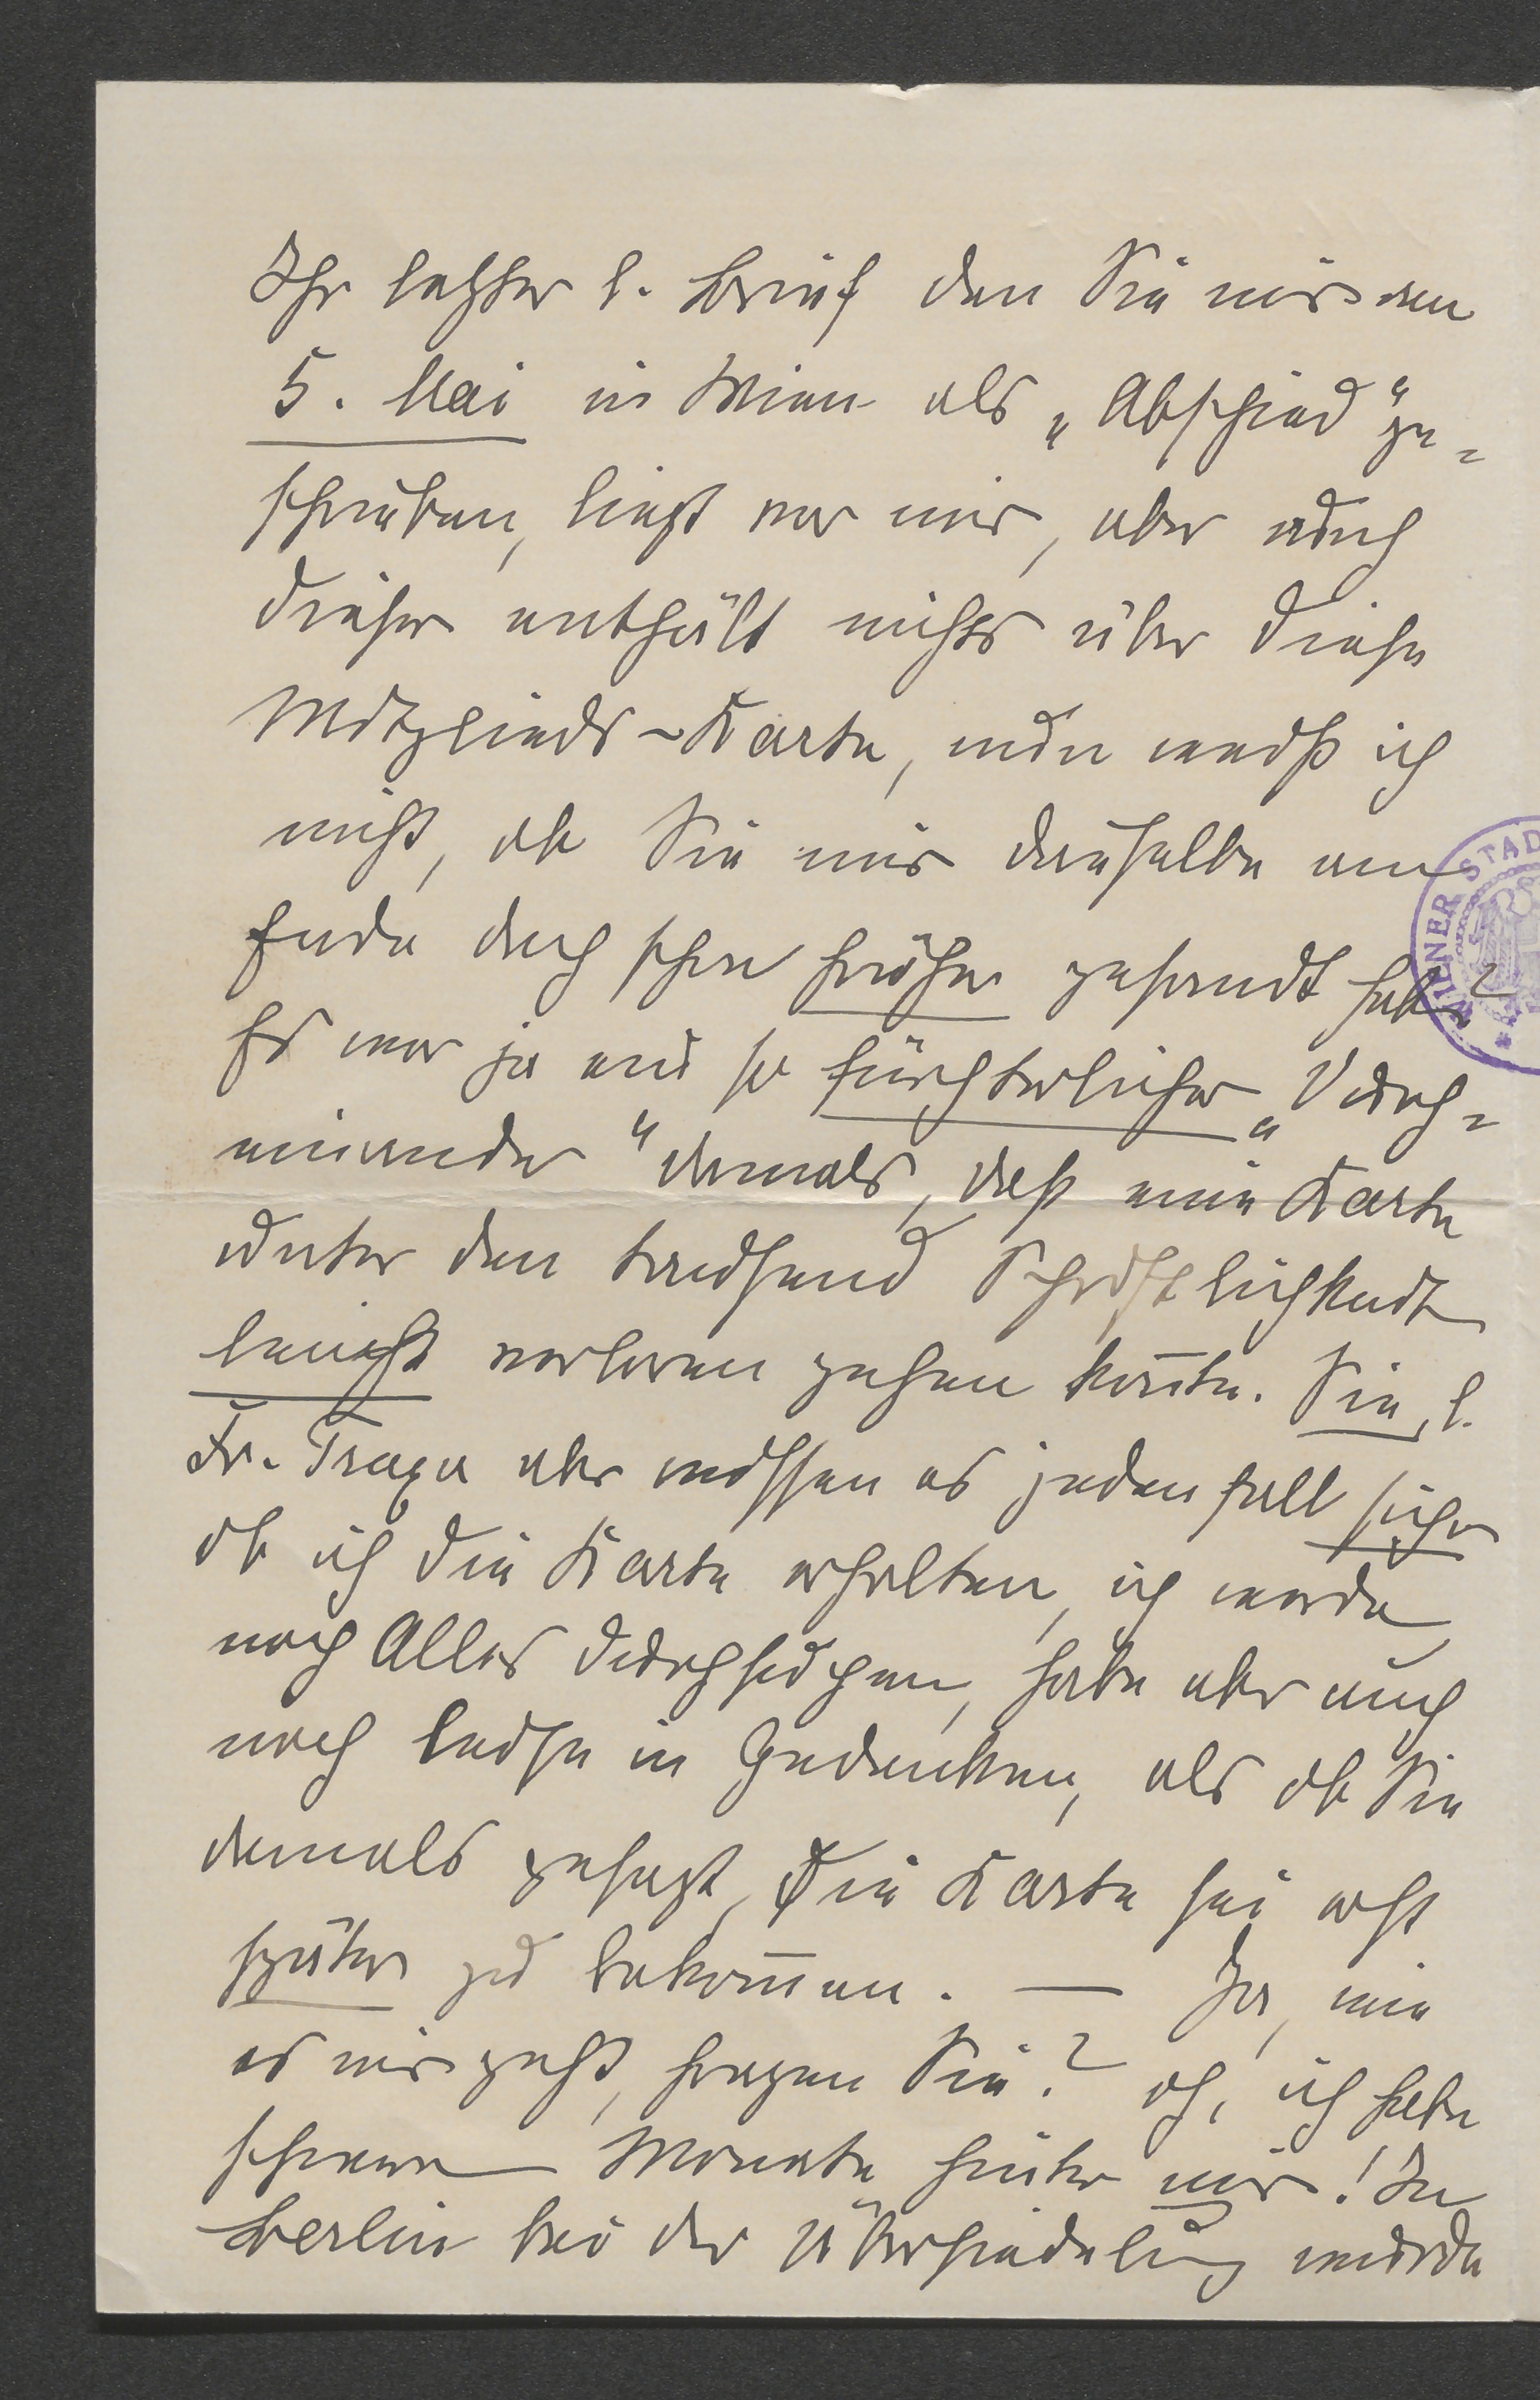 Ihr letzter l. Brief den Sie mir am
5. Mai in Wien als „Abschied“ ge=
schrieben, liegt vor mir, aber auch
dieser enthält nichts über diese
Mitglieds-Karte, nun weiß ich
nicht, ob Sie mir dieselbe am
Ende doch schon früher gesandt hab?
Es war ja ein so fürchterlicher „Durch=
einander“ damals, daß eine Karte
unter den tausend Schriftlichkeit
leicht verloren gehen kon̅te. Sie, l.
Fr. Traxa aber müssen es jedenfall sicher
ob ich die Karte erhalten, ich werde
noch Alles durchsuchen, habe aber auch
noch leise in Gedenken, als ob Sie
damals gesagt, die Karte sei erst
später zu bekom̅en. — Ja, wie
es mir geht, fragen Sie? oh, ich habe
schwere Monate hinter mir! In
Berlin bei der Übersiedelung wurde
WIENER STAD